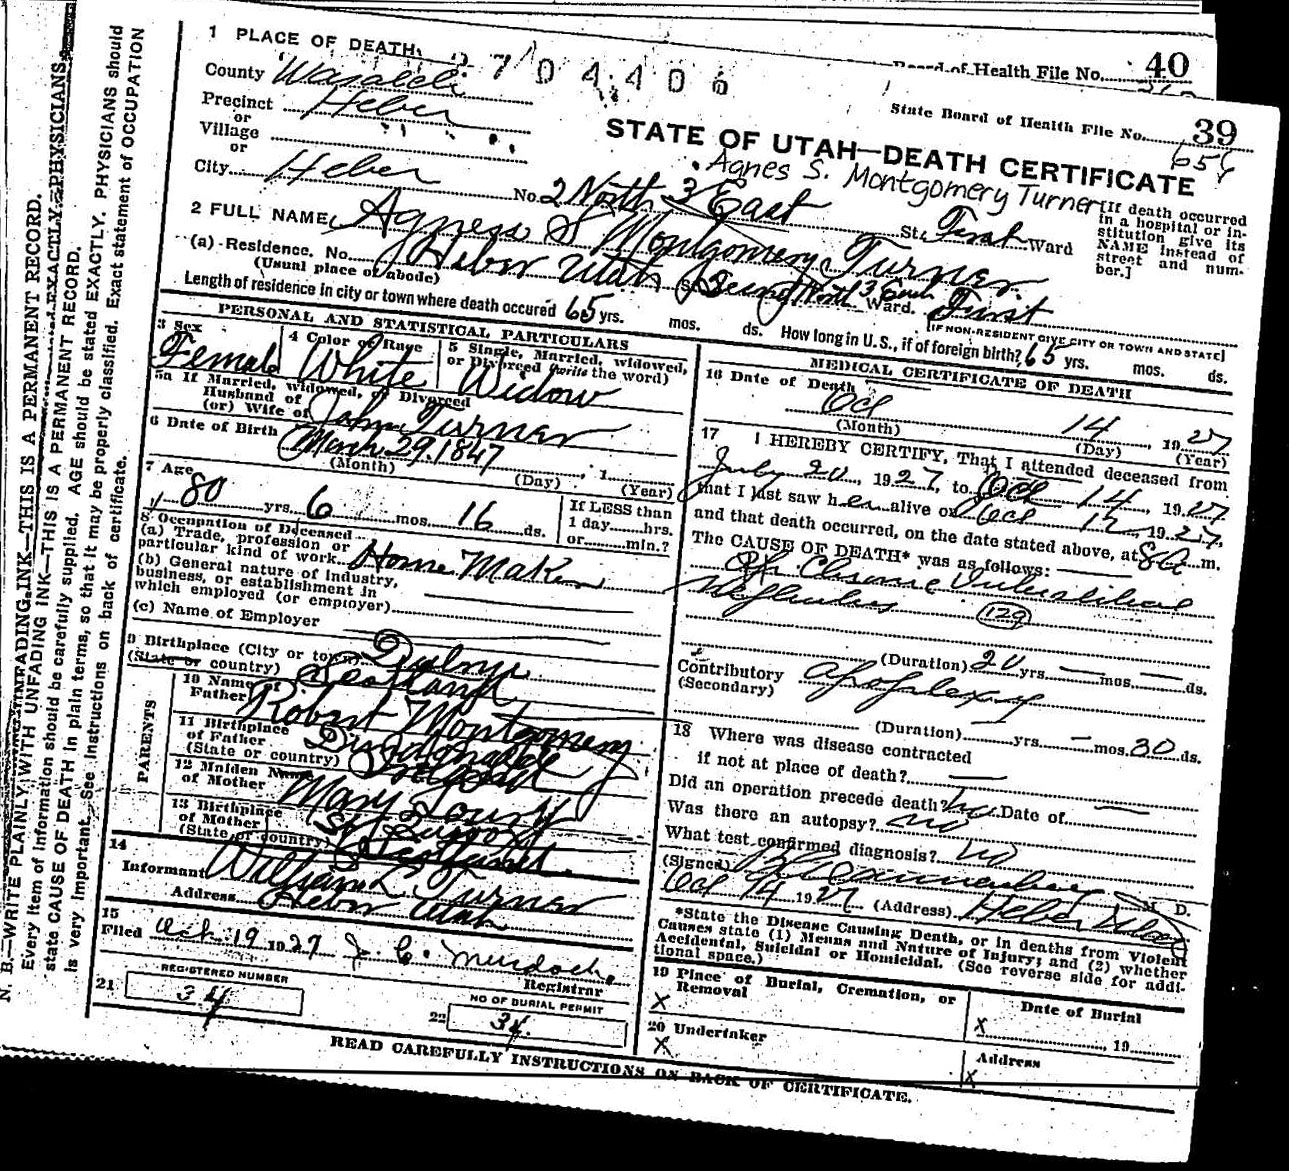 1 PLACE OF DEATH
2704406
Board of Health File No. 40
County Wasatch
State Board of Health File No. 39
Precinct Heber
or
Village
or
STATE OF UTAH—DEATH CERTIFICATE
Agnes S. Montgomery Turner
City Heber No. 2 North 3 East St. First Ward
[If death occurred in a hospital or institution give its NAME instead of street and number.]
2 FULL NAME Agness S Montgomery Turner
(a) Residence. No. Heber Utah North 3 East Ward. First
(Usual place of abode)
[IF NON-RESIDENT GIVE CITY OR TOWN AND STATE]
Length of residence in city or town where death occured 65 yrs. mos. ds. How long in U.S., if of foreign birth? 65 yrs. mos. ds.
PERSONAL AND STATISTICAL PARTICULARS
3 Sex
Female
4 Color or Race
White
5 Single, Married, widowed, or Divorced (write the word)
Widow
5a If Married, widowed, or Divorced
Husband of
(or) Wife of John Turner
6 Date of Birth March 29. 1847
(Month) (Day) (Year)
7 Age
80 yrs. 6 mos. 16 ds.
If LESS than
1 day......hrs.
or......min.?
8 Occupation of Deceased
(a) Trade, profession or
particular kind of work Home Maker
(b) General nature of industry,
business, or establishment in
which employed (or employer)
(c) Name of Employer
9 Birthplace (City or town)
(State or country) Scotland
PARENTS
10 Name of
Father Robert Montgomery
11 Birthplace
of Father
(State or country)
12 Maiden Name
of Mother Mary
13 Birthplace
of Mother
(State or country) Scotland.
14
Informant William L Turner
Address Heber Utah
15
Filed Oct 19 1927 J. C. Murdoch.
Registrar
21 REGISTERED NUMBER
34
22 NO OF BURIAL PERMIT
34.
MEDICAL CERTIFICATE OF DEATH
16 Date of Death
Oct 14, 1927
(Month) (Day) (Year)
17 I HEREBY CERTIFY, That I attended deceased from
July 20, 1927, to Oct 14, 1927
that I last saw her alive on Oct 12, 1927,
and that death occurred, on the date stated above, at m.
The CAUSE OF DEATH* was as follows:
Chronic Interstitial
Nephritis (129)
(Duration) 20 yrs. mos. ds.
Contributory Apoplexy
(Secondary)
(Duration) yrs. mos. 30 ds.
18 Where was disease contracted
if not at place of death?
Did an operation precede death? no Date of
Was there an autopsy? no
What test confirmed diagnosis? no
(Signed) M. D.
Oct 14 1927 (Address) Heber Utah
*State the Disease Causing Death, or in deaths from Violent
Causes state (1) Means and Nature of Injury; and (2) whether
Accidental, Suicidal or Homicidal. (See reverse side for additional space.)
19 Place of Burial, Cremation, or
Removal
X
Date of Burial
X , 19
20 Undertaker
X
Address
X
READ CAREFULLY INSTRUCTIONS ON BACK OF CERTIFICATE.
N. B.—WRITE PLAINLY WITH UNFADING INK—THIS IS A PERMANENT RECORD.
Every item of information should be carefully supplied. AGE should be stated EXACTLY. PHYSICIANS should
state CAUSE OF DEATH in plain terms, so that it may be properly classified. Exact statement of OCCUPATION
is very important. See instructions on back of certificate.